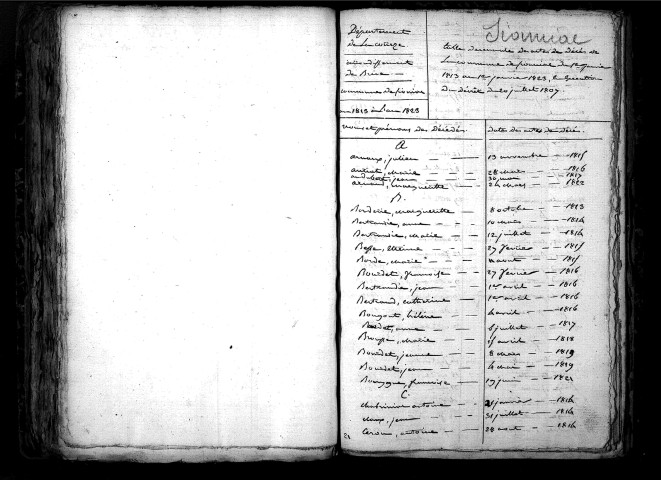 Département
de la corrèze
arrondissement
de Brive
commune de
an 1813 à l'an 1823
table décennale des actes de décès de
la commune de du 1er janvier
1813 au 1er janvier 1823, en exécution
du décret du 20 juillet 1807
noms et prénoms des Décédés
dates des actes de décès
A
arnaux, julien 13 novembre 1815
marie 28 mars 1816
jean 30 mai 1817
arnaud, marguerite 24 mars 1822
B.
Borderie, marguerite 8 octobre 1813
Bertrandie, anne 10 mars 1814
Bertrandie, marie 12 juillet 1814
Besse, étienne 27 février 1815
Borde, marie août 1815
Bourdet, françoise 27 février 1816
Bertrandie, jean 1er avril 1816
Bertrand, catherine 1er avril 1816
hélène 4 avril 1816
anne 5 juillet 1817
marie avril 1818
Bourdet, jeanne 8 mars 1819
Bourdet, jean 4 mai 1819
françoise 19 juin 1822
C.
antoine 21 janvier 1814
jean 31 juillet 1814
antoine 28 août 1814